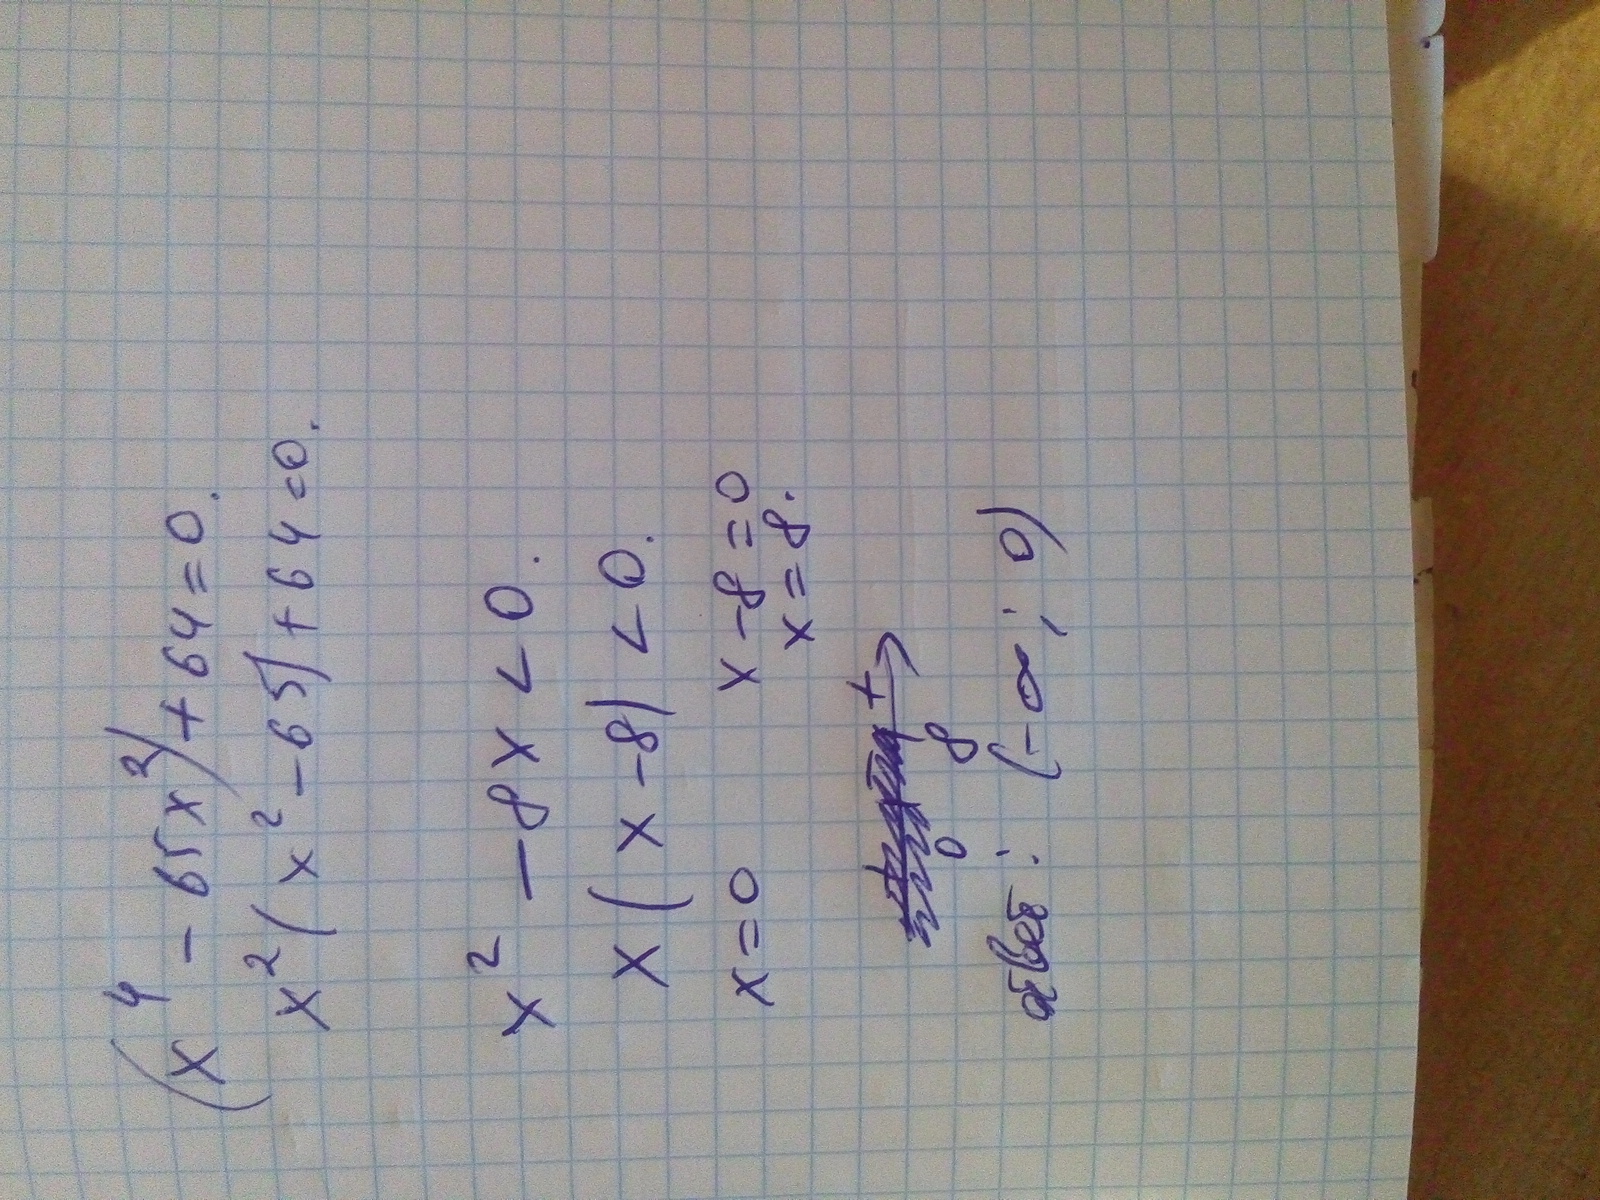 (x⁴ - 65x²) + 64 = 0.
x²(x² - 65) + 64 = 0.
x² - 8x < 0.
x(x - 8) < 0.
x = 0 x - 8 = 0
x = 8.
+
0 8
ответ: (-∞; 0)